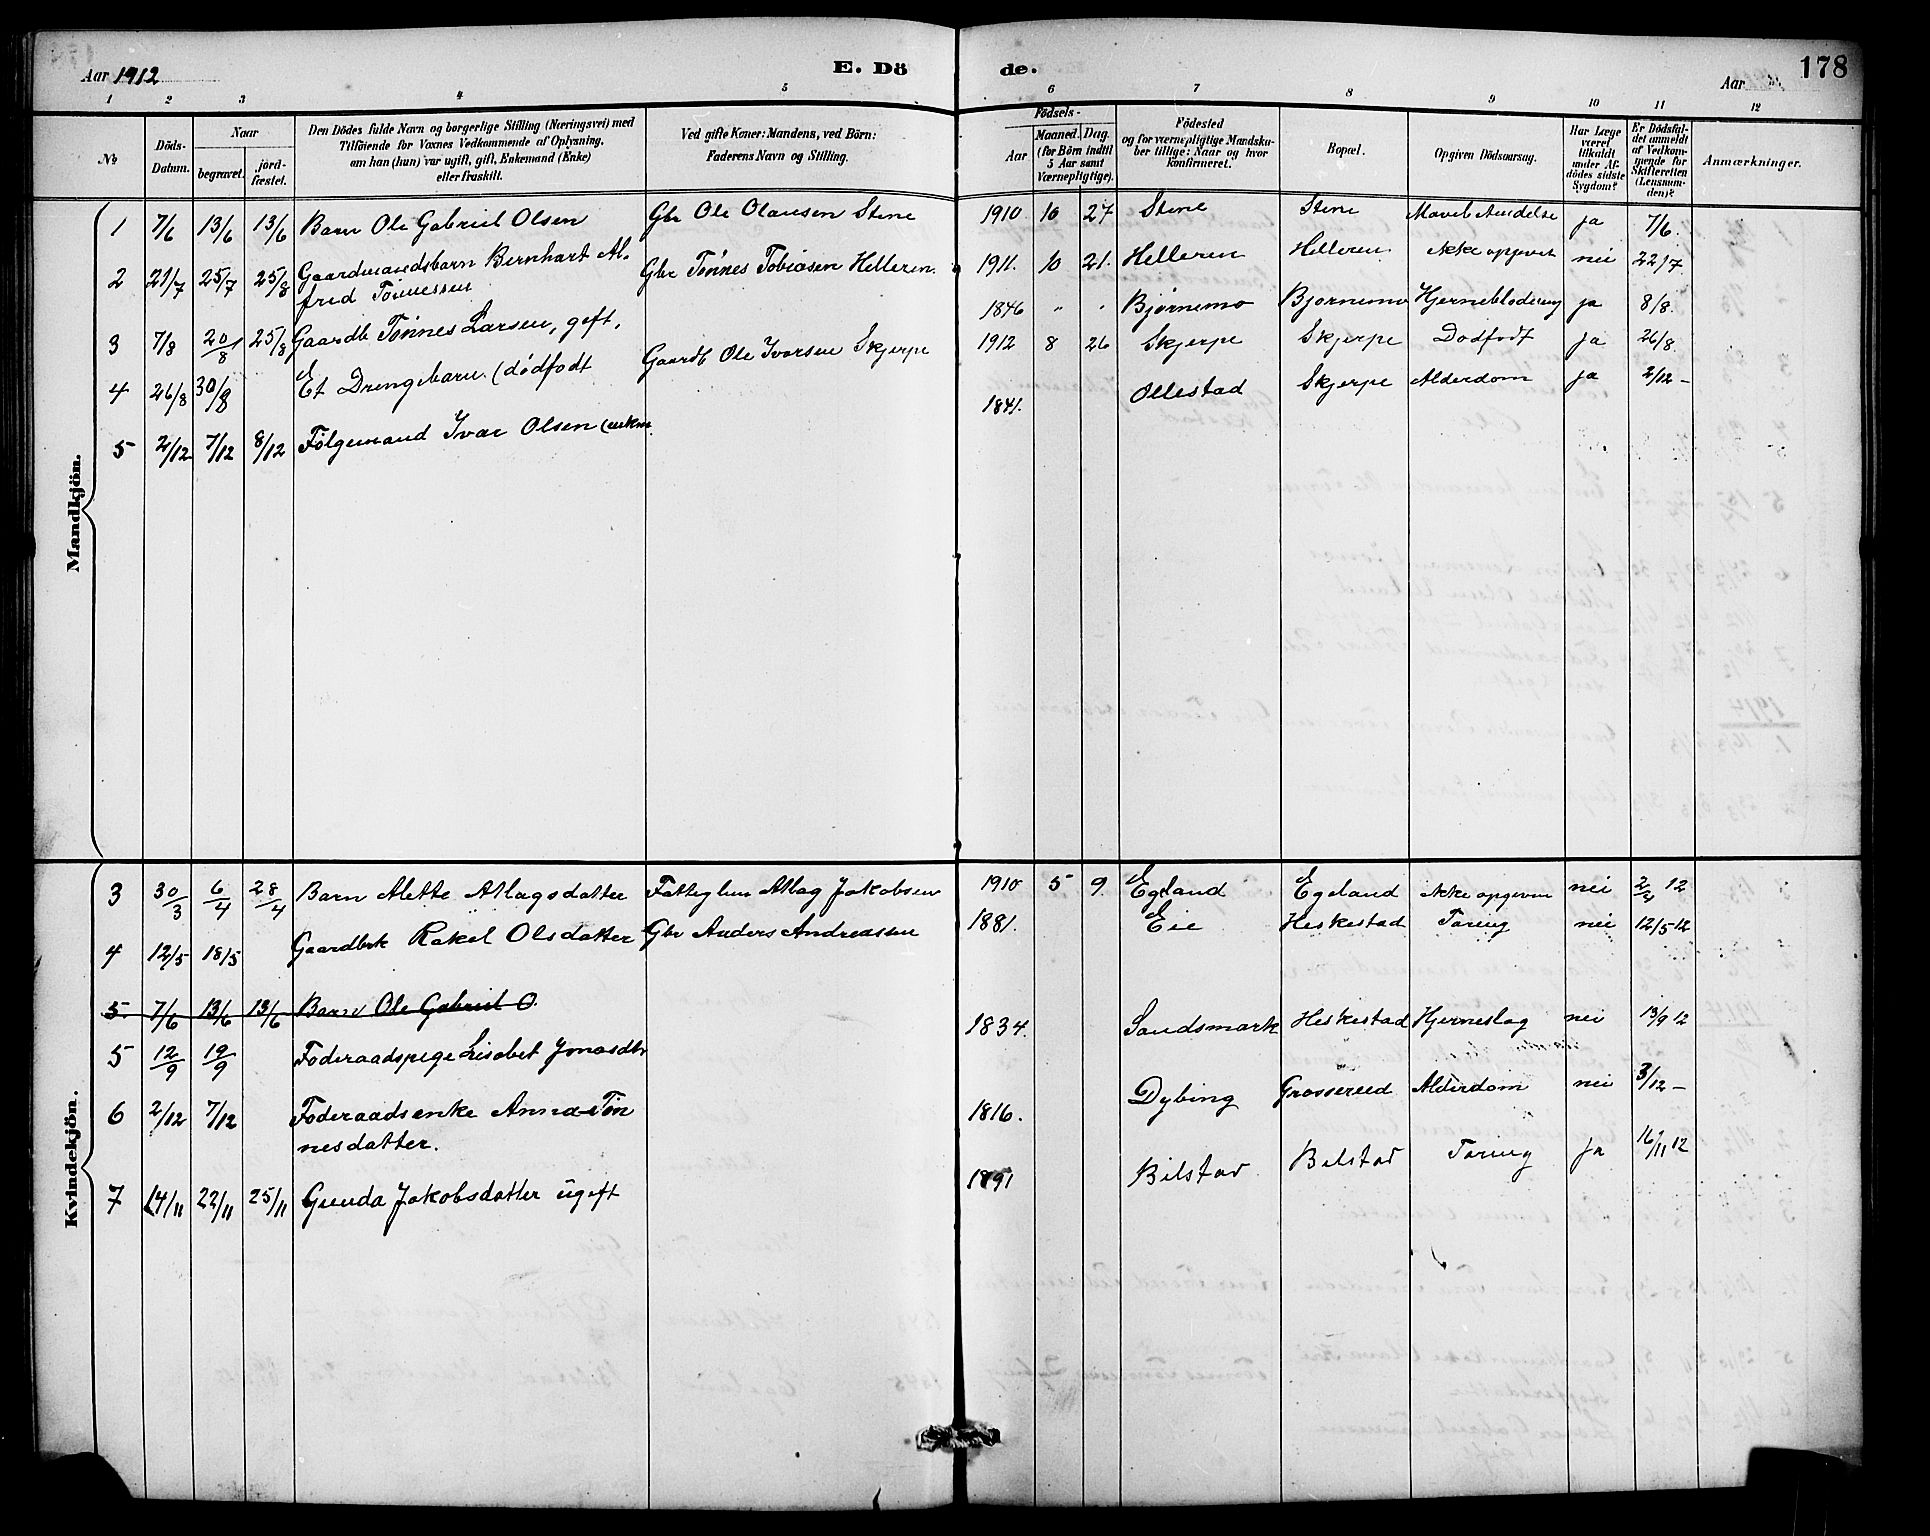 Aar 1912
E. Dö
de.
Aar
178
1 2 3 4 5 6 7 8 9 10 11 12
№
Döds-
Datum.
Naar
begravet.
jord-
fæstet.
Den Dödes fulde Navn og borgerlige Stilling (Næringsvei) med
Tilföiende for Voxnes Vedkommende af Oplysning,
om han (hun) var ugift, gift, Enkemand (Enke)
eller fraskilt.
Ved gifte Koner: Mandens, ved Börn:
Faderens Navn og Stilling.
Födsels-
Aar
Maaned.
Dag.
(for Börn indtil
5 Aar samt
Værnepligtige).
Födested
og for værnepligtige Mandska-
ber tillige: Naar og hvor
konfirmeret.
Bopæl.
Opgiven Dödsaarsag.
Har Læge
været
tilkaldt
under Af-
dödes sidste
Sygdom?
Er Dödsfal-
det anmeldt
af Vedkom-
mende for
Skifteretten
(Lensman-
den)?
Anmærkninger.
Mandkjön.
1 7/6 13/6 13/6 Barn Ole Gabriel Olsen Gbr Ole Olausen Stene 1910 10 27 Stene Stene ja 7/6.
2 21/7 25/7 25/8 Gaardmandsbarn Bernhart Al-
fred Tönnessen Gbr Tönnes Tobiasen Helleren. 1911. 10 21. Helleren Helleren ikke opgivet nei 22/7
3 7/8 20/8 25/8 Gaardb Tönnes Larsen, gift. 1846 " " Bjørnemo Bjørnemo Hjerneblødning ja 8/8.
4 26/8 30/8 Et Drengebarn (dødfødt Gaardb Ole Ivarsen Skjerpe 1912 8 26 Skjerpe Skjerpe Dødfødt ja 26/8.
5 2/12 7/12 8/12 Følgemand Ivar Olsen (enkm. 1841. Ollestad Skjerpe Alderdom ja 2/12 –
Kvindekjön.
3 30/3 6/4 28/4 Barn Alette Atlagsdatter Fattiglem Atlag Jakobsen 1910 5 9. Egeland Egeland ikke opgiven nei 2/4 12
4 12/5 18/5 Gaardbrk Rakel Olsdatter Gbr Anders Andreassen 1881. Eie Heskestad Tæring nei 12/5 12
5. 7/6 13/6 13/6 Barn Ole Gabriel O.
5 12/9 19/9 Føderaadspige Lisabet Jonasdtr 1834. Sandsmark Heskestad Hjerneslag nei 13/9 12
6 2/12 7/12 Føderaadsenke Anna Tøn
nesdatter. 1816. Dybing Grøssereid Alderdom nei 3/12 –
7 14/11 22/11 25/11 Gunda Jakobsdatter ugift 1891 Bilstad Bilstad Tæring ja 16/11 12